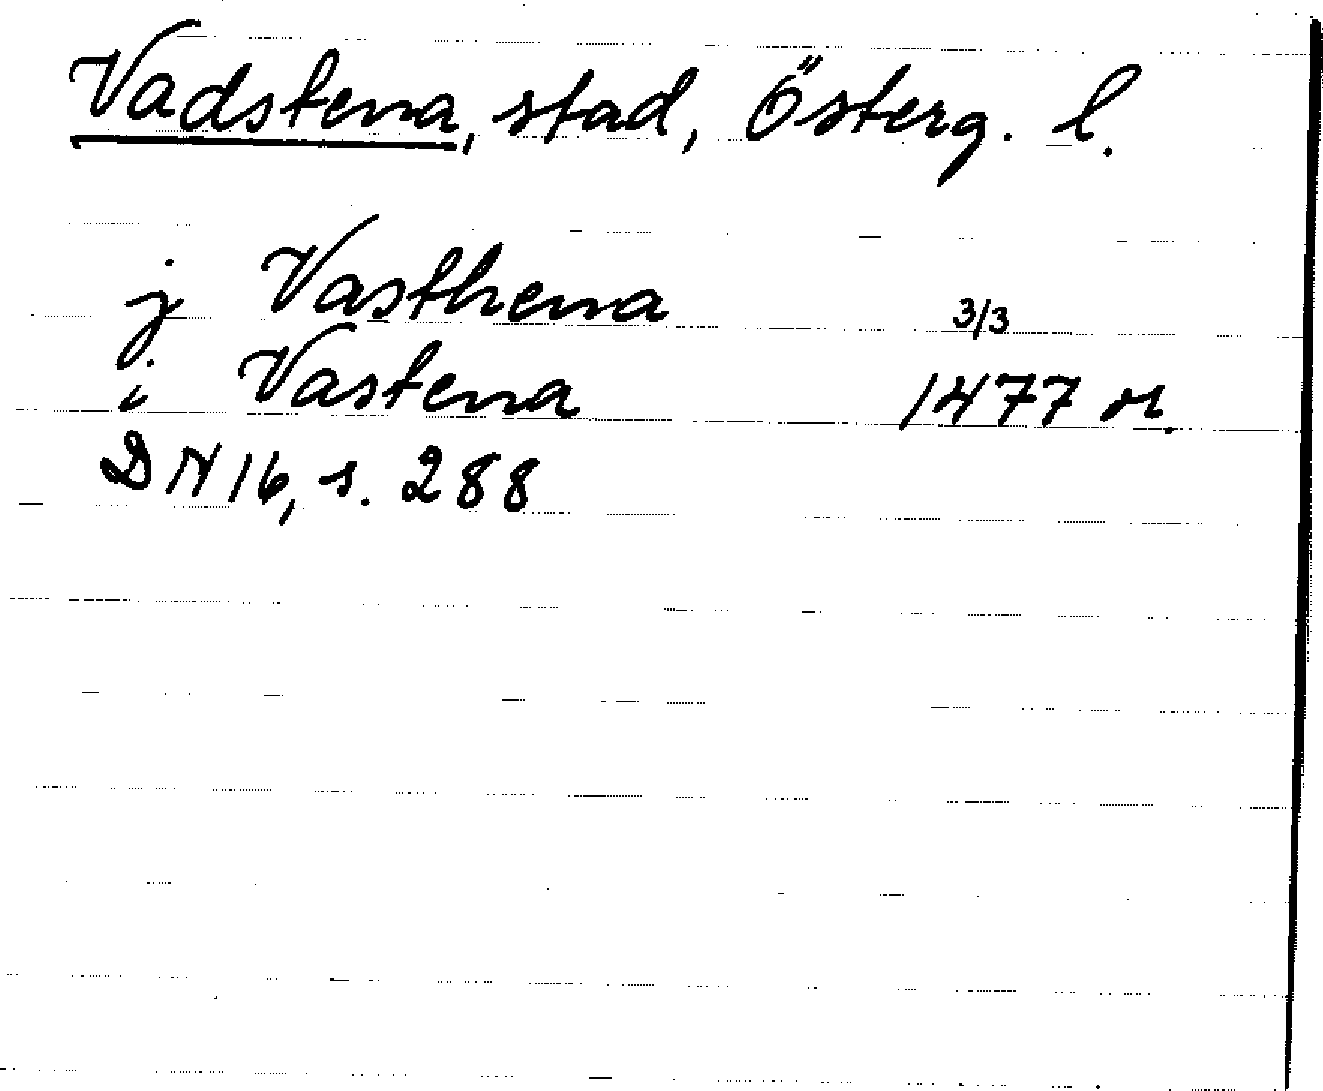 Vadstena, stad, Österg. l.
j Vasthena 3/3
i Vastena 1477 or.
DN 16, s. 288